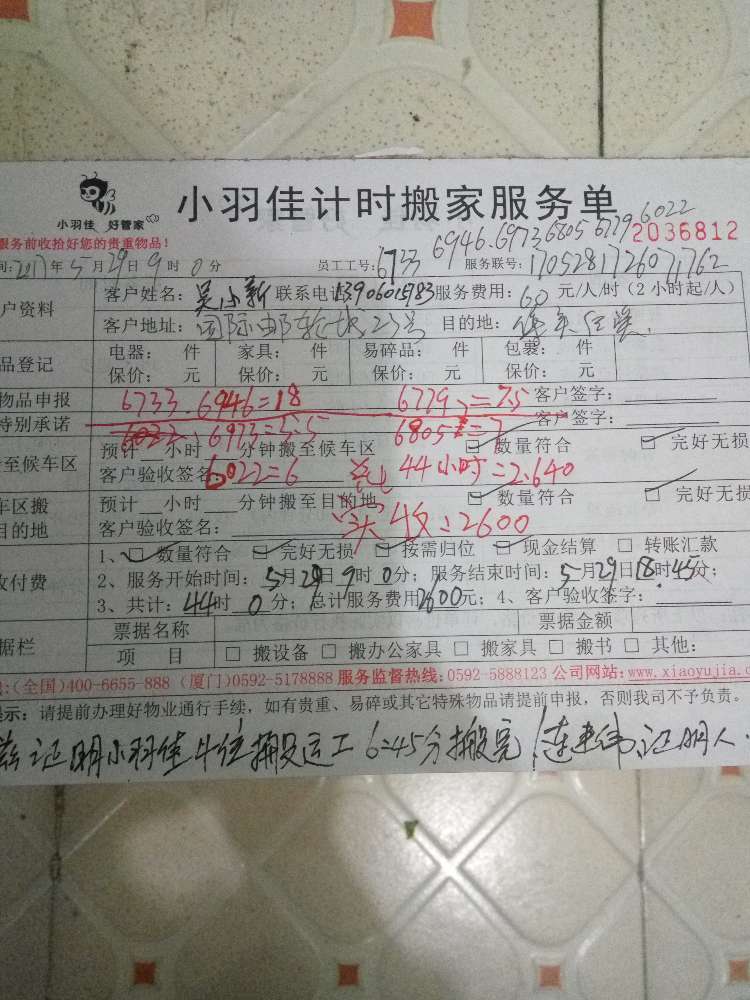 小羽佳 好管家
小羽佳计时搬家服务单
服务前收拾好您的贵重物品!
6946.6973 6805 6779 6022
2036812
间:2017年5月29日9时0分 员工工号:6733 服务联号:1705281726071762
户资料 客户姓名:吴小新 联系电话13906015983 服务费用:60元/人/时(2小时起/人)
客户地址:国际邮轮城23号 目的地:
品登记 电器: 件 家具: 件 易碎品: 件 包裹: 件
保价: 元 保价: 元 保价: 元 保价: 元
物品申报 6733.6946=18 6779=7.5 客户签字:
特别承诺 客户签字:
6022 6973=5.5 6805=7
至候车区 预计 小时 分钟搬至候车区 数量符合 完好无损
客户验收签名: 6022=6 共 44小时=2.640
车区搬目的地 预计 小时 分钟搬至目的地 数量符合 完好无损
客户验收签名: 实收:2600
收付费 1、数量符合 完好无损 按需归位 现金结算 转账汇款
2、服务开始时间:5月29日9时0分;服务结束时间:5月29日18时45分;
3、共计:44时0分;总计服务费用2600元;4、客户验收签字:
据栏 票据名称 票据金额
项 目 搬设备 搬办公家具 搬家具 搬书 其他:
:(全国)400-6655-888 (厦门)0592-5178888 服务监督热线:0592-5888123 公司网站:www.xiaoyujia.com
提示:请提前办理好物业通行手续,如有贵重、易碎或其它特殊物品请提前申报,否则我司不予负责。
兹证明小羽佳 搬运工6:45分搬完 证明人.